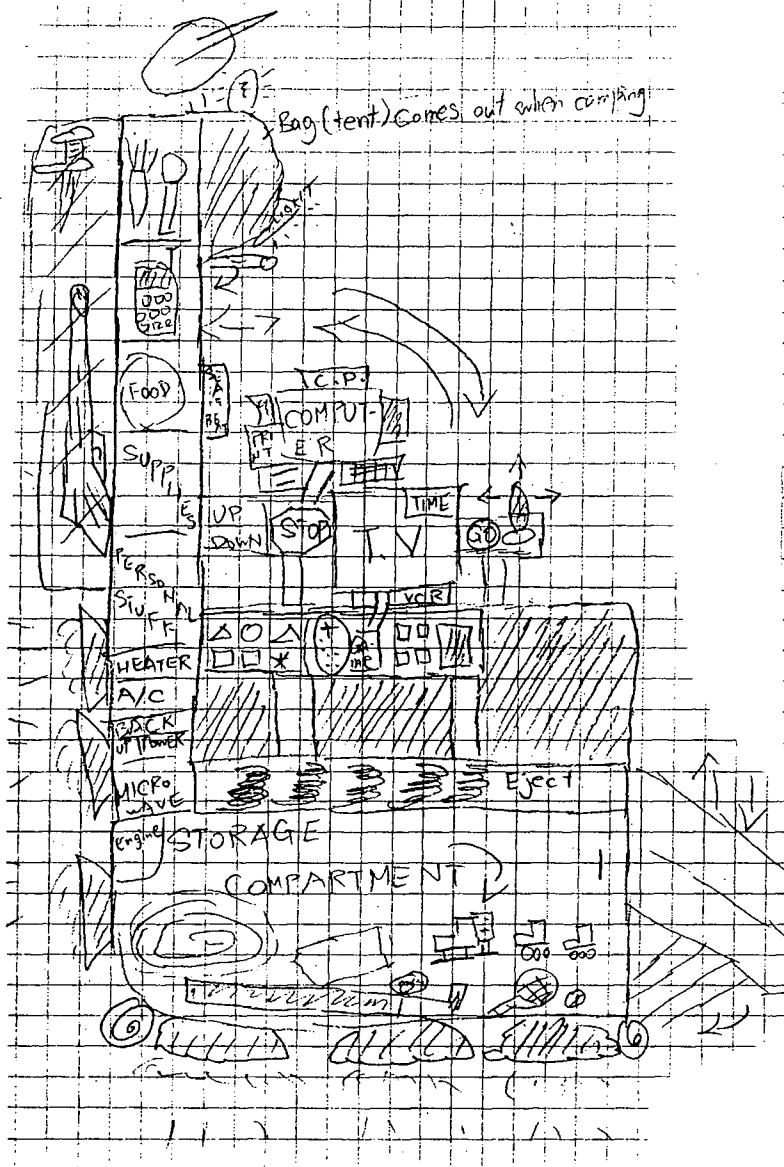 Bag (tent) Comes out when camping
LIGHT
FOOD
SEAT BELT
I.C.P.
COMPUT-
ER
PRINT
SUPPLIES
UP
DOWN
STOP
TIME
T.V
GO
VCR
PERSONAL
STUFF
HEATER
A/C
BACK
UP POWER
MICRO
WAVE
Eject
engine
STORAGE
COMPARTMENT